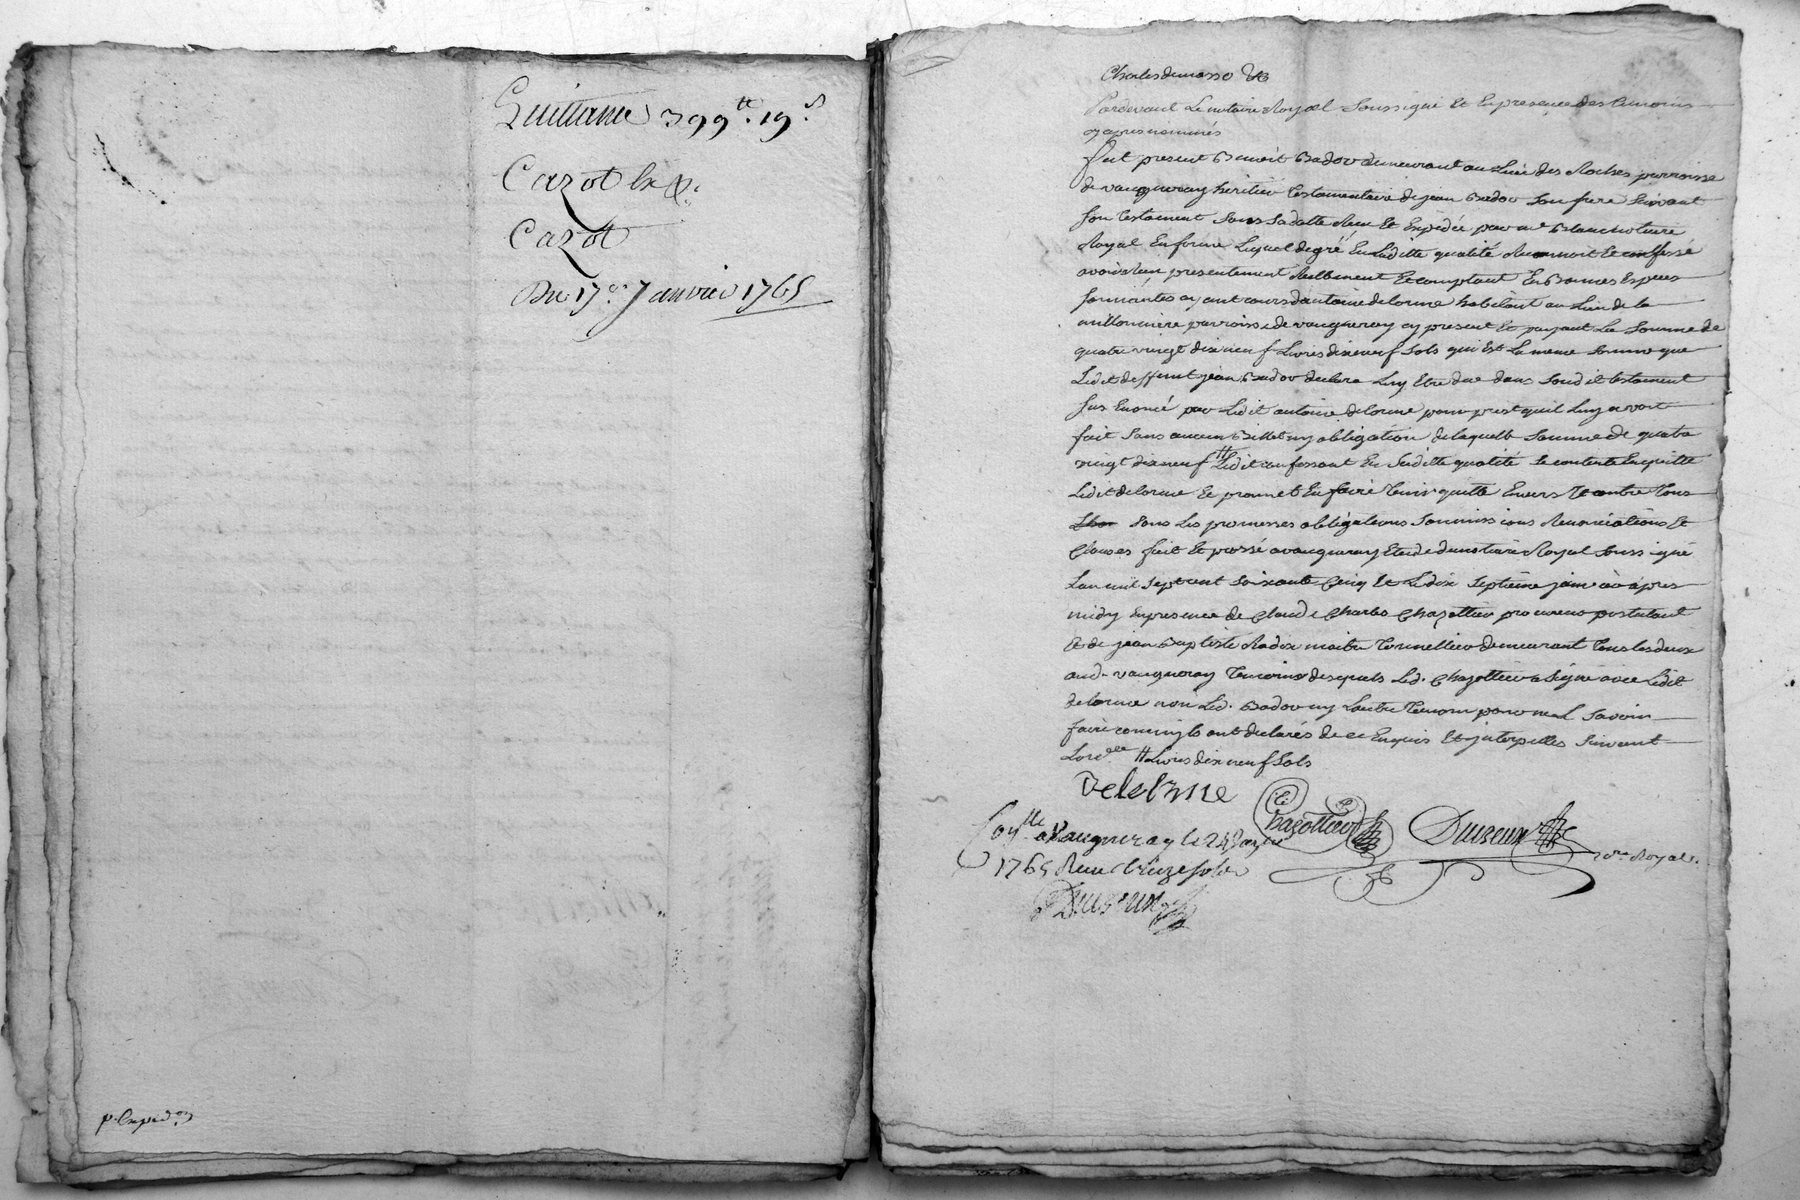 Quittance 399tt. 19s
Cazot
Cazot
Du 17e. Janvier 1765
p. Exped.on
Charles demasso &a
Pardevant Le notaire Royal Soussigné Et En presence des temoins
cy apres nommés
fut present Benoit Bador demeurant au Lieu des Roches parroisse
de vaugneray héritier testamentaire de jean Bador Son frere Suivant
Son testament Sous Sa datte Receu Et Expédiée par me Blanc notaire
Royal En forme Lequel de gré En Laditte qualité Reconnoit Et confesse
avoir Receu presentement Reellement Et comptant En Bonnes Especes
Sonnantes ayant cours d'antoine delorme habitant au Lieu de la
millonniere parroisse de vaugneray cy present Et payant La Somme de
quatre vingt dix neuf Livres dix neuf Sols qui Est La meme Somme que
Ledit deffunt jean Badov declara Luy Etre due dans Soudit testament
Sus Enoncé par Ledit antoine delorme pour prest quil Luy avoit
fait Sans aucun Billet ny obligation de laquelle Somme de quatre
vingt dix neuf # Ledit confessant En Saditte qualité Se contente En quitte
Ledit delorme Et promet En faire tenir quitte Envers Et contre tous
Sous Les promesses obligations Soumissions Renonciations Et
Clauses fait Et passé a vaugneray Etude du notaire Royal Soussigné
Lan mil Sept cent Soixante Cinq Et Le dix Septième janvier apres
midy En presence de Claude Charles Chazottier procureur postulant
Et de jean Baptiste Radix maitre Tonnellier demeurant tous les deux
aud. vaugneray temoins desquels Led. Chazottier a Signé avec Ledit
delorme non Led. Badov ny Lautre temoin pour ne Savoir
faire comme ils ont declarés de ce Enquis Et interpellés Suivant
Lordce # Livres dix neuf Sols
Delorme
Chazottier
Duvzeux
Nore Royal.
Conlle a Vaugneray le 24 Janvier
1765 Reçu treize sols